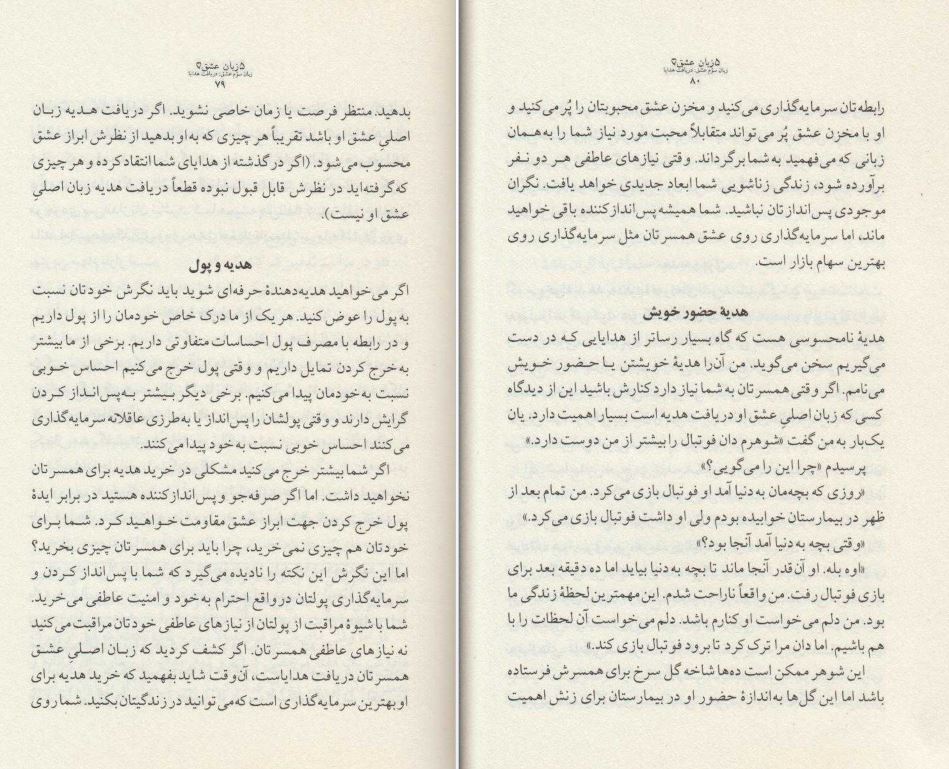 ۵ زبان عشق
زبان سوّم عشق: دریافت هدایا
۷۹
بدهید. منتظر فرصت یا زمان خاصی نشوید. اگر دریافت هدیه زبان
اصلیِ عشق او باشد تقریباً هر چیزی که به او بدهید از نظرش ابراز عشق
محسوب می‌شود. (اگر در گذشته از هدایای شما انتقاد کرده و هر چیزی
که گرفته‌اید در نظرش قابل قبول نبوده قطعاً دریافت هدیه زبان اصلیِ
عشق او نیست).
هدیه و پول
اگر می‌خواهید هدیه‌دهندهٔ حرفه‌ای شوید باید نگرش خودتان نسبت
به پول را عوض کنید. هر یک از ما درک خاص خودمان را از پول داریم
و در رابطه با مصرف پول احساسات متفاوتی داریم. برخی از ما بیشتر
به خرج کردن تمایل داریم و وقتی پول خرج می‌کنیم احساس خوبی
نسبت به خودمان پیدا می‌کنیم. برخی دیگر بیشتر به پس‌انداز کردن
گرایش دارند و وقتی پولشان را پس‌انداز یا به طرزی عاقلانه سرمایه‌گذاری
می‌کنند احساس خوبی نسبت به خود پیدا می‌کنند.
اگر شما بیشتر خرج می‌کنید مشکلی در خرید هدیه برای همسرتان
نخواهید داشت. اما اگر صرفه‌جو و پس‌اندازکننده هستید در برابر ایدهٔ
پول خرج کردن جهت ابراز عشق مقاومت خواهید کرد. شما برای
خودتان هم چیزی نمی‌خرید، چرا باید برای همسرتان چیزی بخرید؟
اما این نگرش این نکته را نادیده می‌گیرد که شما با پس‌انداز کردن و
سرمایه‌گذاری پولتان در واقع احترام به خود و امنیت عاطفی می‌خرید.
شما با شیوهٔ مراقبت از پولتان از نیازهای عاطفی خودتان مراقبت می‌کنید
نه نیازهای عاطفی همسرتان. اگر کشف کردید که زبان اصلیِ عشق
همسرتان دریافت هدایاست، آن‌وقت شاید بفهمید که خرید هدیه برای
او بهترین سرمایه‌گذاری است که می‌توانید در زندگیتان بکنید. شما روی
۵ زبان عشق
زبان سوّم عشق: دریافت هدایا
۸۰
رابطه‌تان سرمایه‌گذاری می‌کنید و مخزن عشق محبوبتان را پُر می‌کنید و
او با مخزن عشق پُر می‌تواند متقابلاً محبت مورد نیاز شما را به همان
زبانی که می‌فهمید به شما برگرداند. وقتی نیازهای عاطفی هر دو نفر
برآورده شود، زندگی زناشویی شما ابعاد جدیدی خواهد یافت. نگران
موجودی پس‌اندازتان نباشید. شما همیشه پس‌اندازکننده باقی خواهید
ماند، اما سرمایه‌گذاری روی عشق همسرتان مثل سرمایه‌گذاری روی
بهترین سهام بازار است.
هدیهٔ حضور خویش
هدیهٔ نامحسوسی هست که گاه بسیار رساتر از هدایایی که در دست
می‌گیریم سخن می‌گوید. من آن را هدیهٔ خویشتن یا حضور خویش
می‌نامم. اگر وقتی همسرتان به شما نیاز دارد کنارش باشید این از دیدگاه
کسی که زبان اصلیِ عشق او دریافت هدیه است بسیار اهمیت دارد. یان
یک‌بار به من گفت «شوهرم دان فوتبال را بیشتر از من دوست دارد.»
پرسیدم «چرا این را می‌گویی؟»
«روزی که بچه‌مان به دنیا آمد او فوتبال بازی می‌کرد. من تمام بعد از
ظهر در بیمارستان خوابیده بودم ولی او داشت فوتبال بازی می‌کرد.»
«وقتی بچه به دنیا آمد آنجا بود؟»
«اوه بله. او آن‌قدر آنجا ماند تا بچه به دنیا بیاید اما ده دقیقه بعد برای
بازی فوتبال رفت. من واقعاً ناراحت شدم. این مهمترین لحظهٔ زندگی ما
بود. من دلم می‌خواست او کنارم باشد. دلم می‌خواست آن لحظات را با
هم باشیم. اما دان مرا ترک کرد تا برود فوتبال بازی کند.»
این شوهر ممکن است ده‌ها شاخه گل سرخ برای همسرش فرستاده
باشد اما این گل‌ها به اندازهٔ حضور او در بیمارستان برای زنش اهمیت